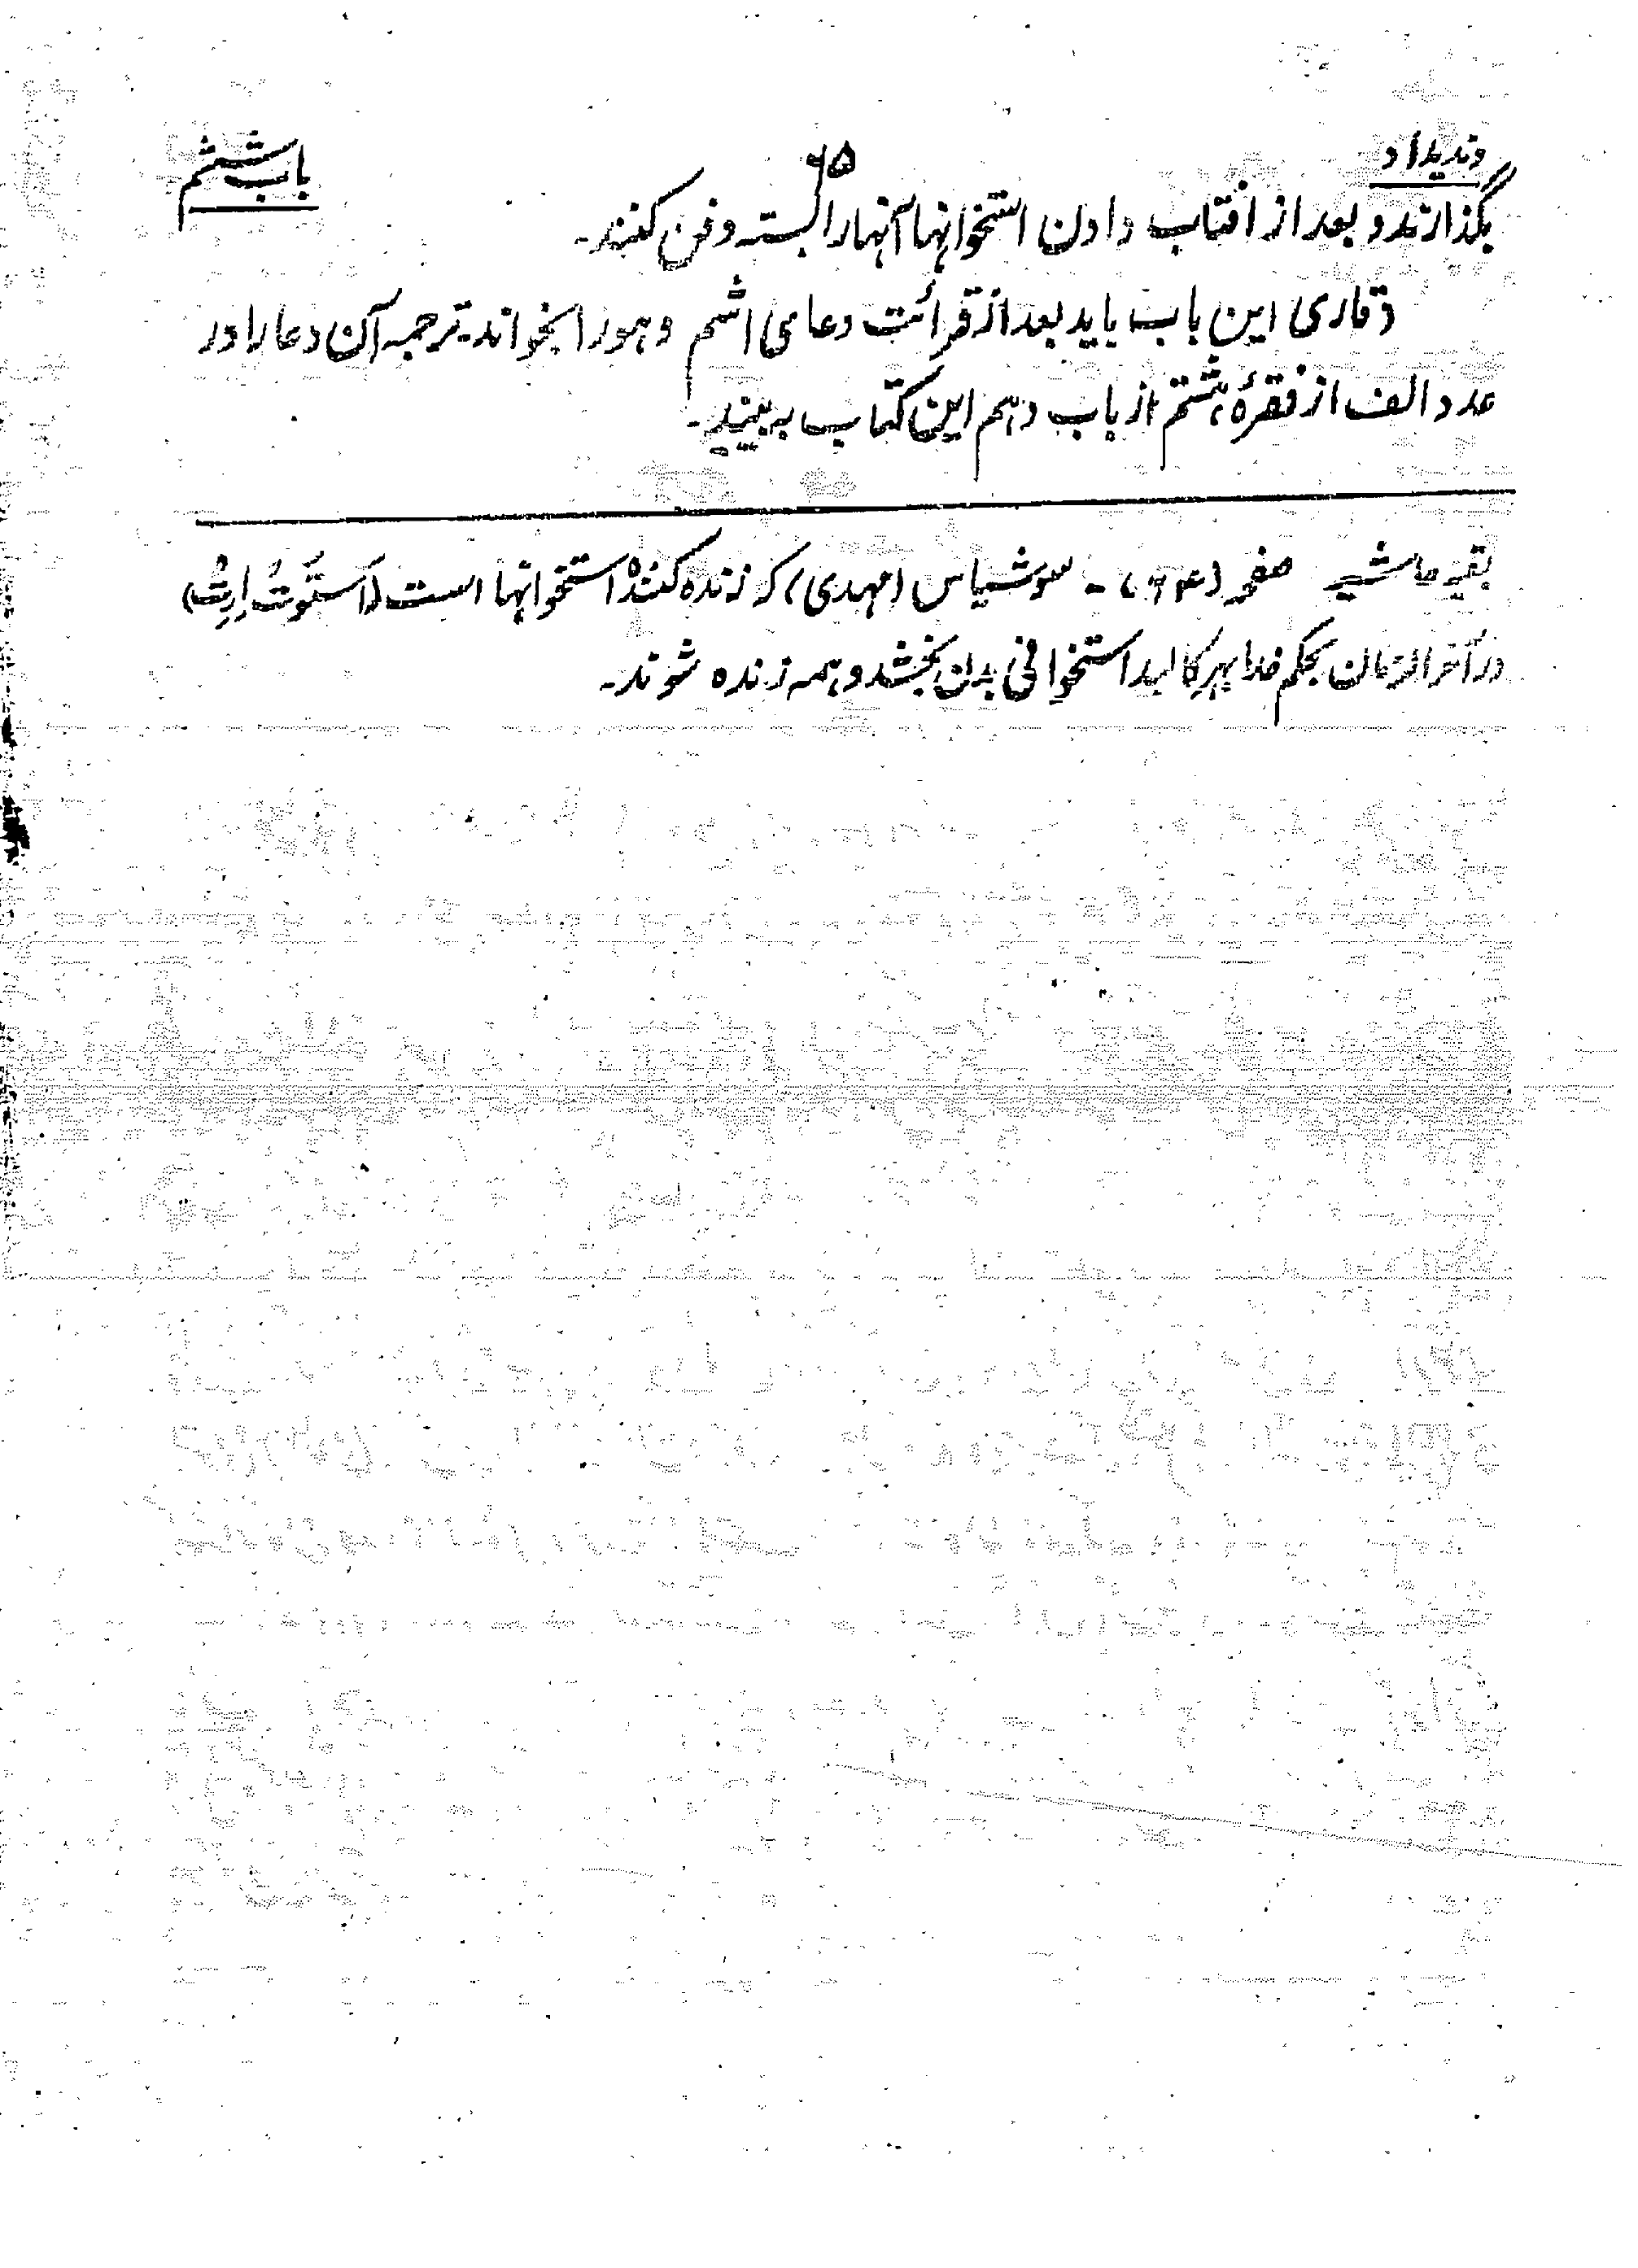 وندیداد ۶۵ باب ششم
بگذارند و بعد از افتاب دادن استخوانها آنهارا البته دفن کنند۔
وقاری این باب باید بعد از قرائت دعا می اشم وہورا بخواند۔ ترجمہ آن دعا را در
عدد الف از فقرۂ ہشتم از باب دہم این کتاب بہ بیند۔
بقیہ حاشیہ صفحہ (۶۴)۔ سوشیاس (مہدی) کہ زندہ کنندۂ استخوانہا است (اَستْوَتْ اِرِتْ)
در آخر الزمان بحکم خدا بہر کالبد استخوانی بدن بخشد وہمہ زندہ شوند۔